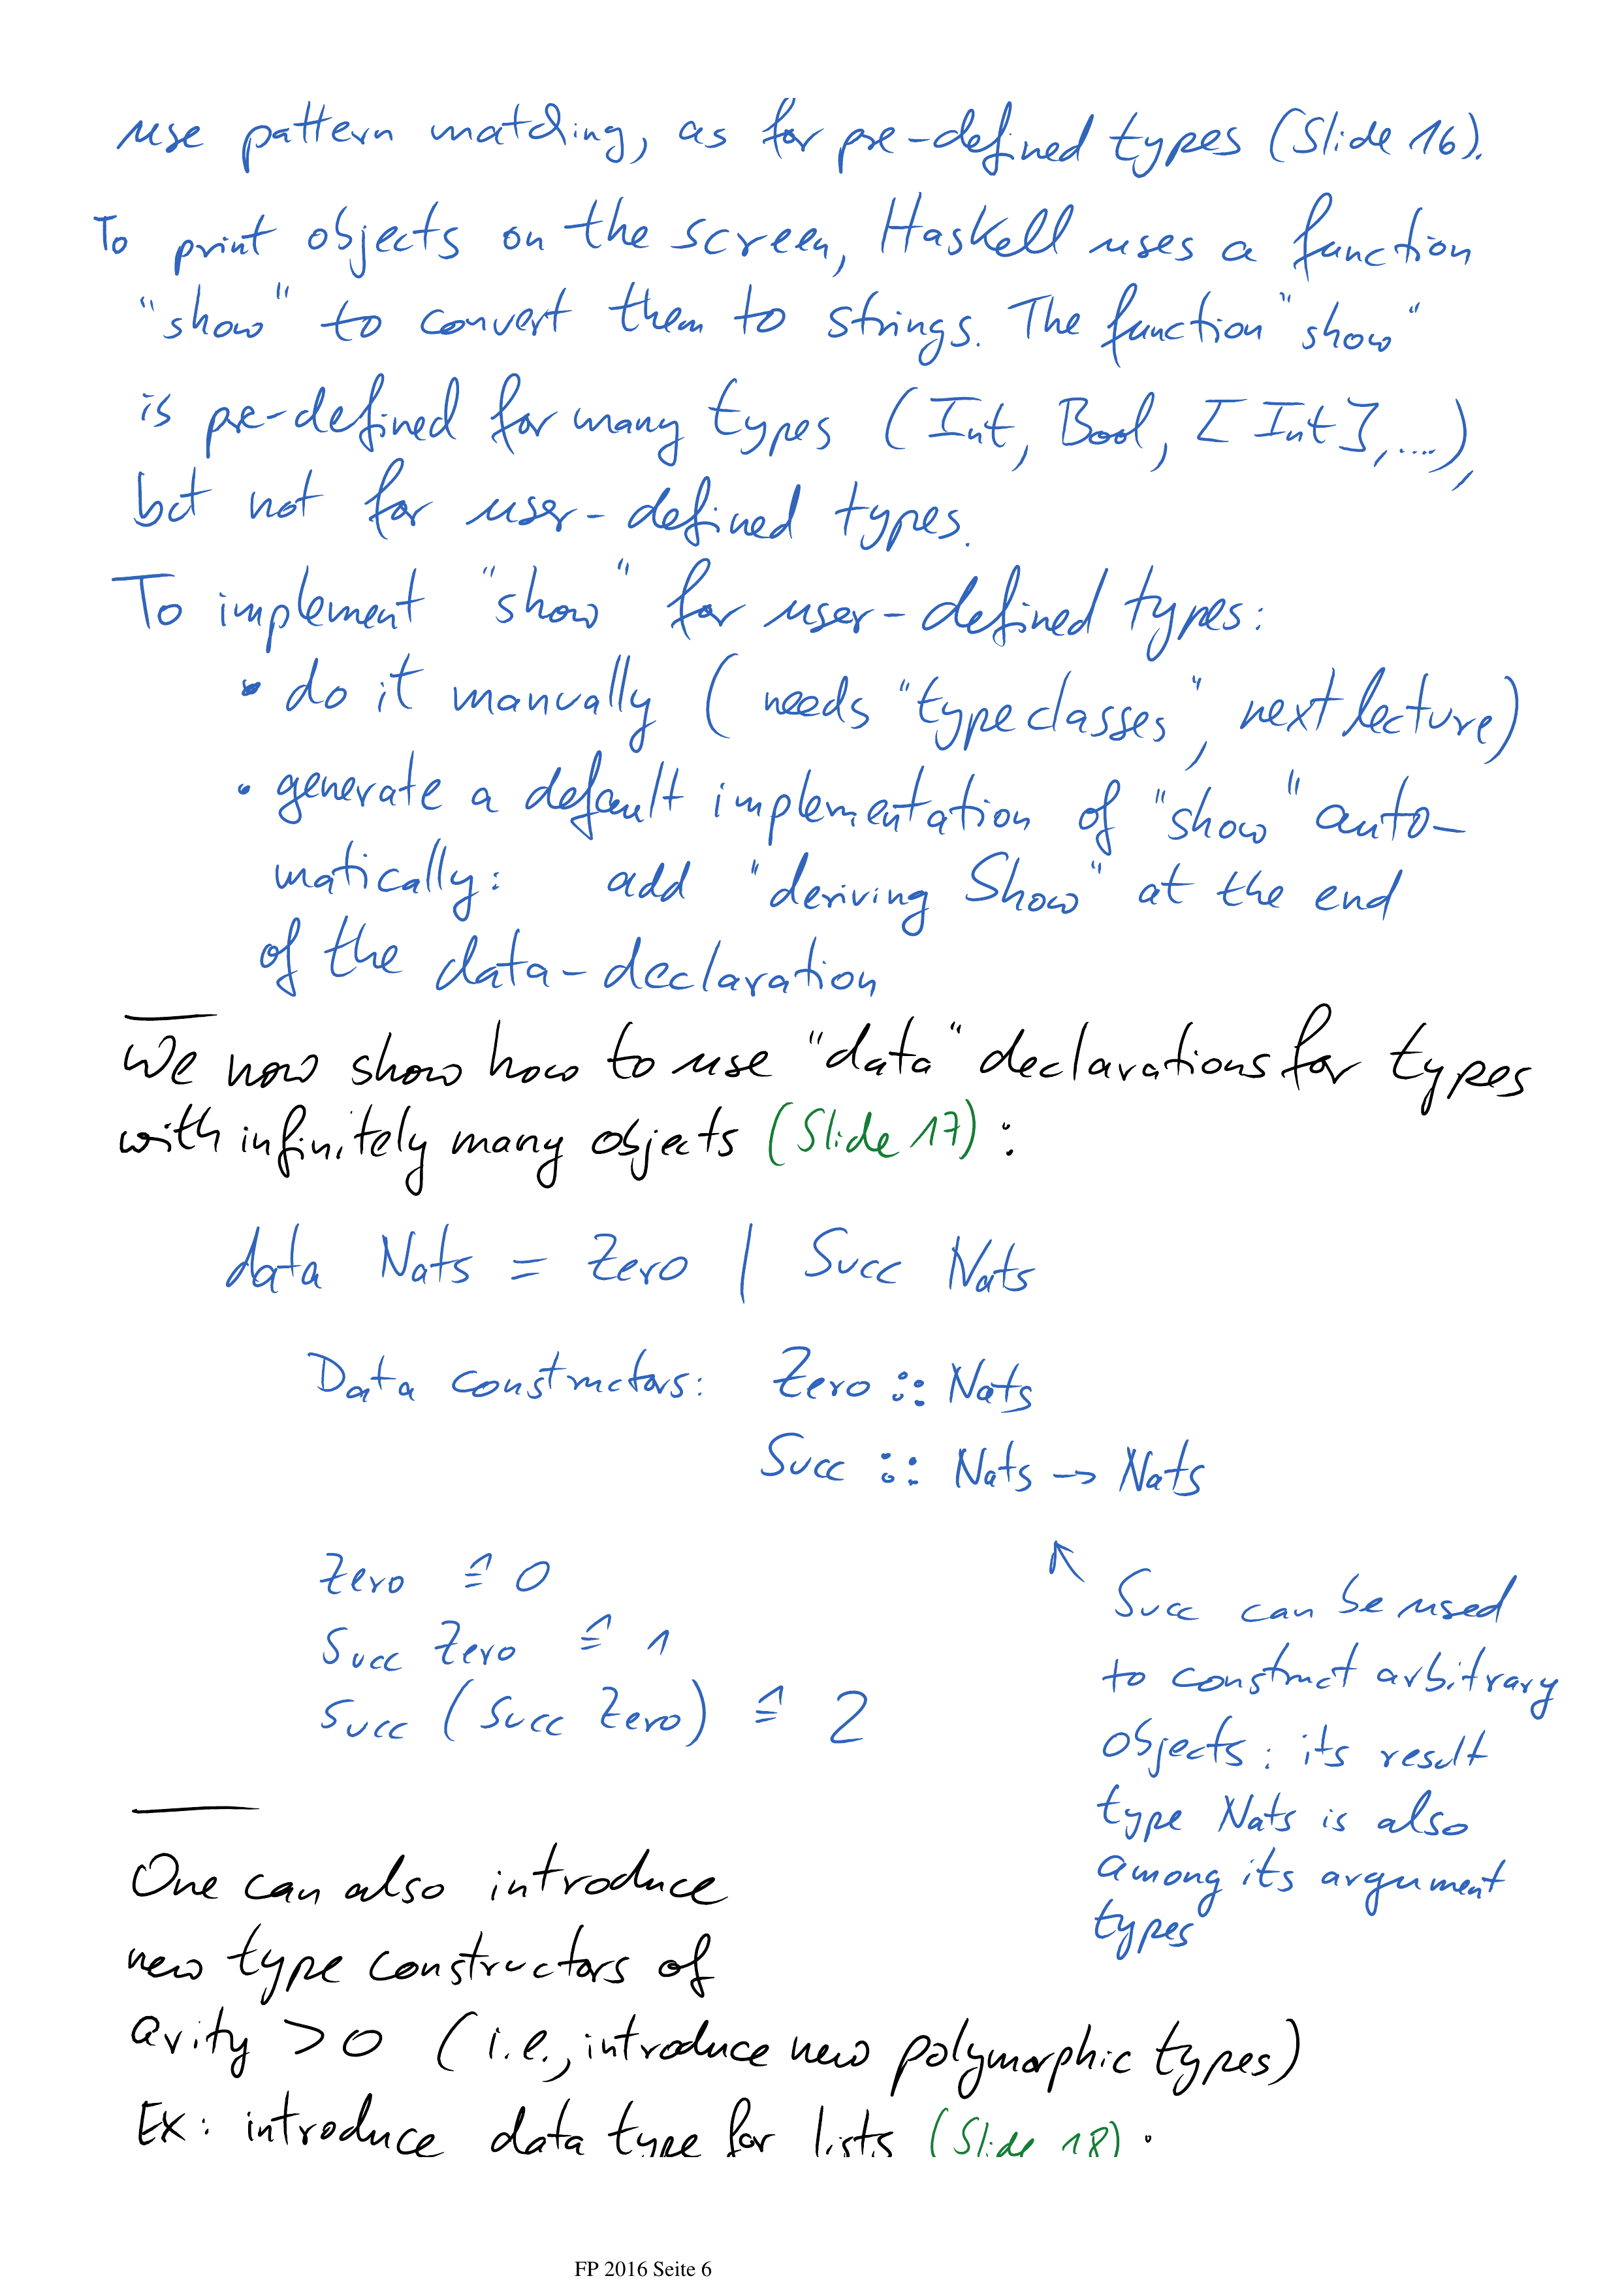 use pattern matching, as for pre-defined types (Slide 16).
To print objects on the screen, Haskell uses a function
"show" to convert them to strings. The function "show"
is pre-defined for many types (Int, Bool, [Int],...),
but not for user-defined types.
To implement "show" for user-defined types:
• do it manually (needs "typeclasses", next lecture)
• generate a default implementation of "show" auto-
matically: add "deriving Show" at the end
of the data-declaration
We now show how to use "data" declarations for types
with infinitely many objects (Slide 17):
data Nats = Zero | Succ Nats
Data constructors: Zero :: Nats
Succ :: Nats -> Nats
Zero ≙ 0
Succ Zero ≙ 1
Succ (Succ Zero) ≙ 2
↖ Succ can be used
to construct arbitrary
objects: its result
type Nats is also
among its argument
types
One can also introduce
new type constructors of
arity > 0 (i.e., introduce new polymorphic types)
Ex: introduce data type for lists (Slide 18).
FP 2016 Seite 6